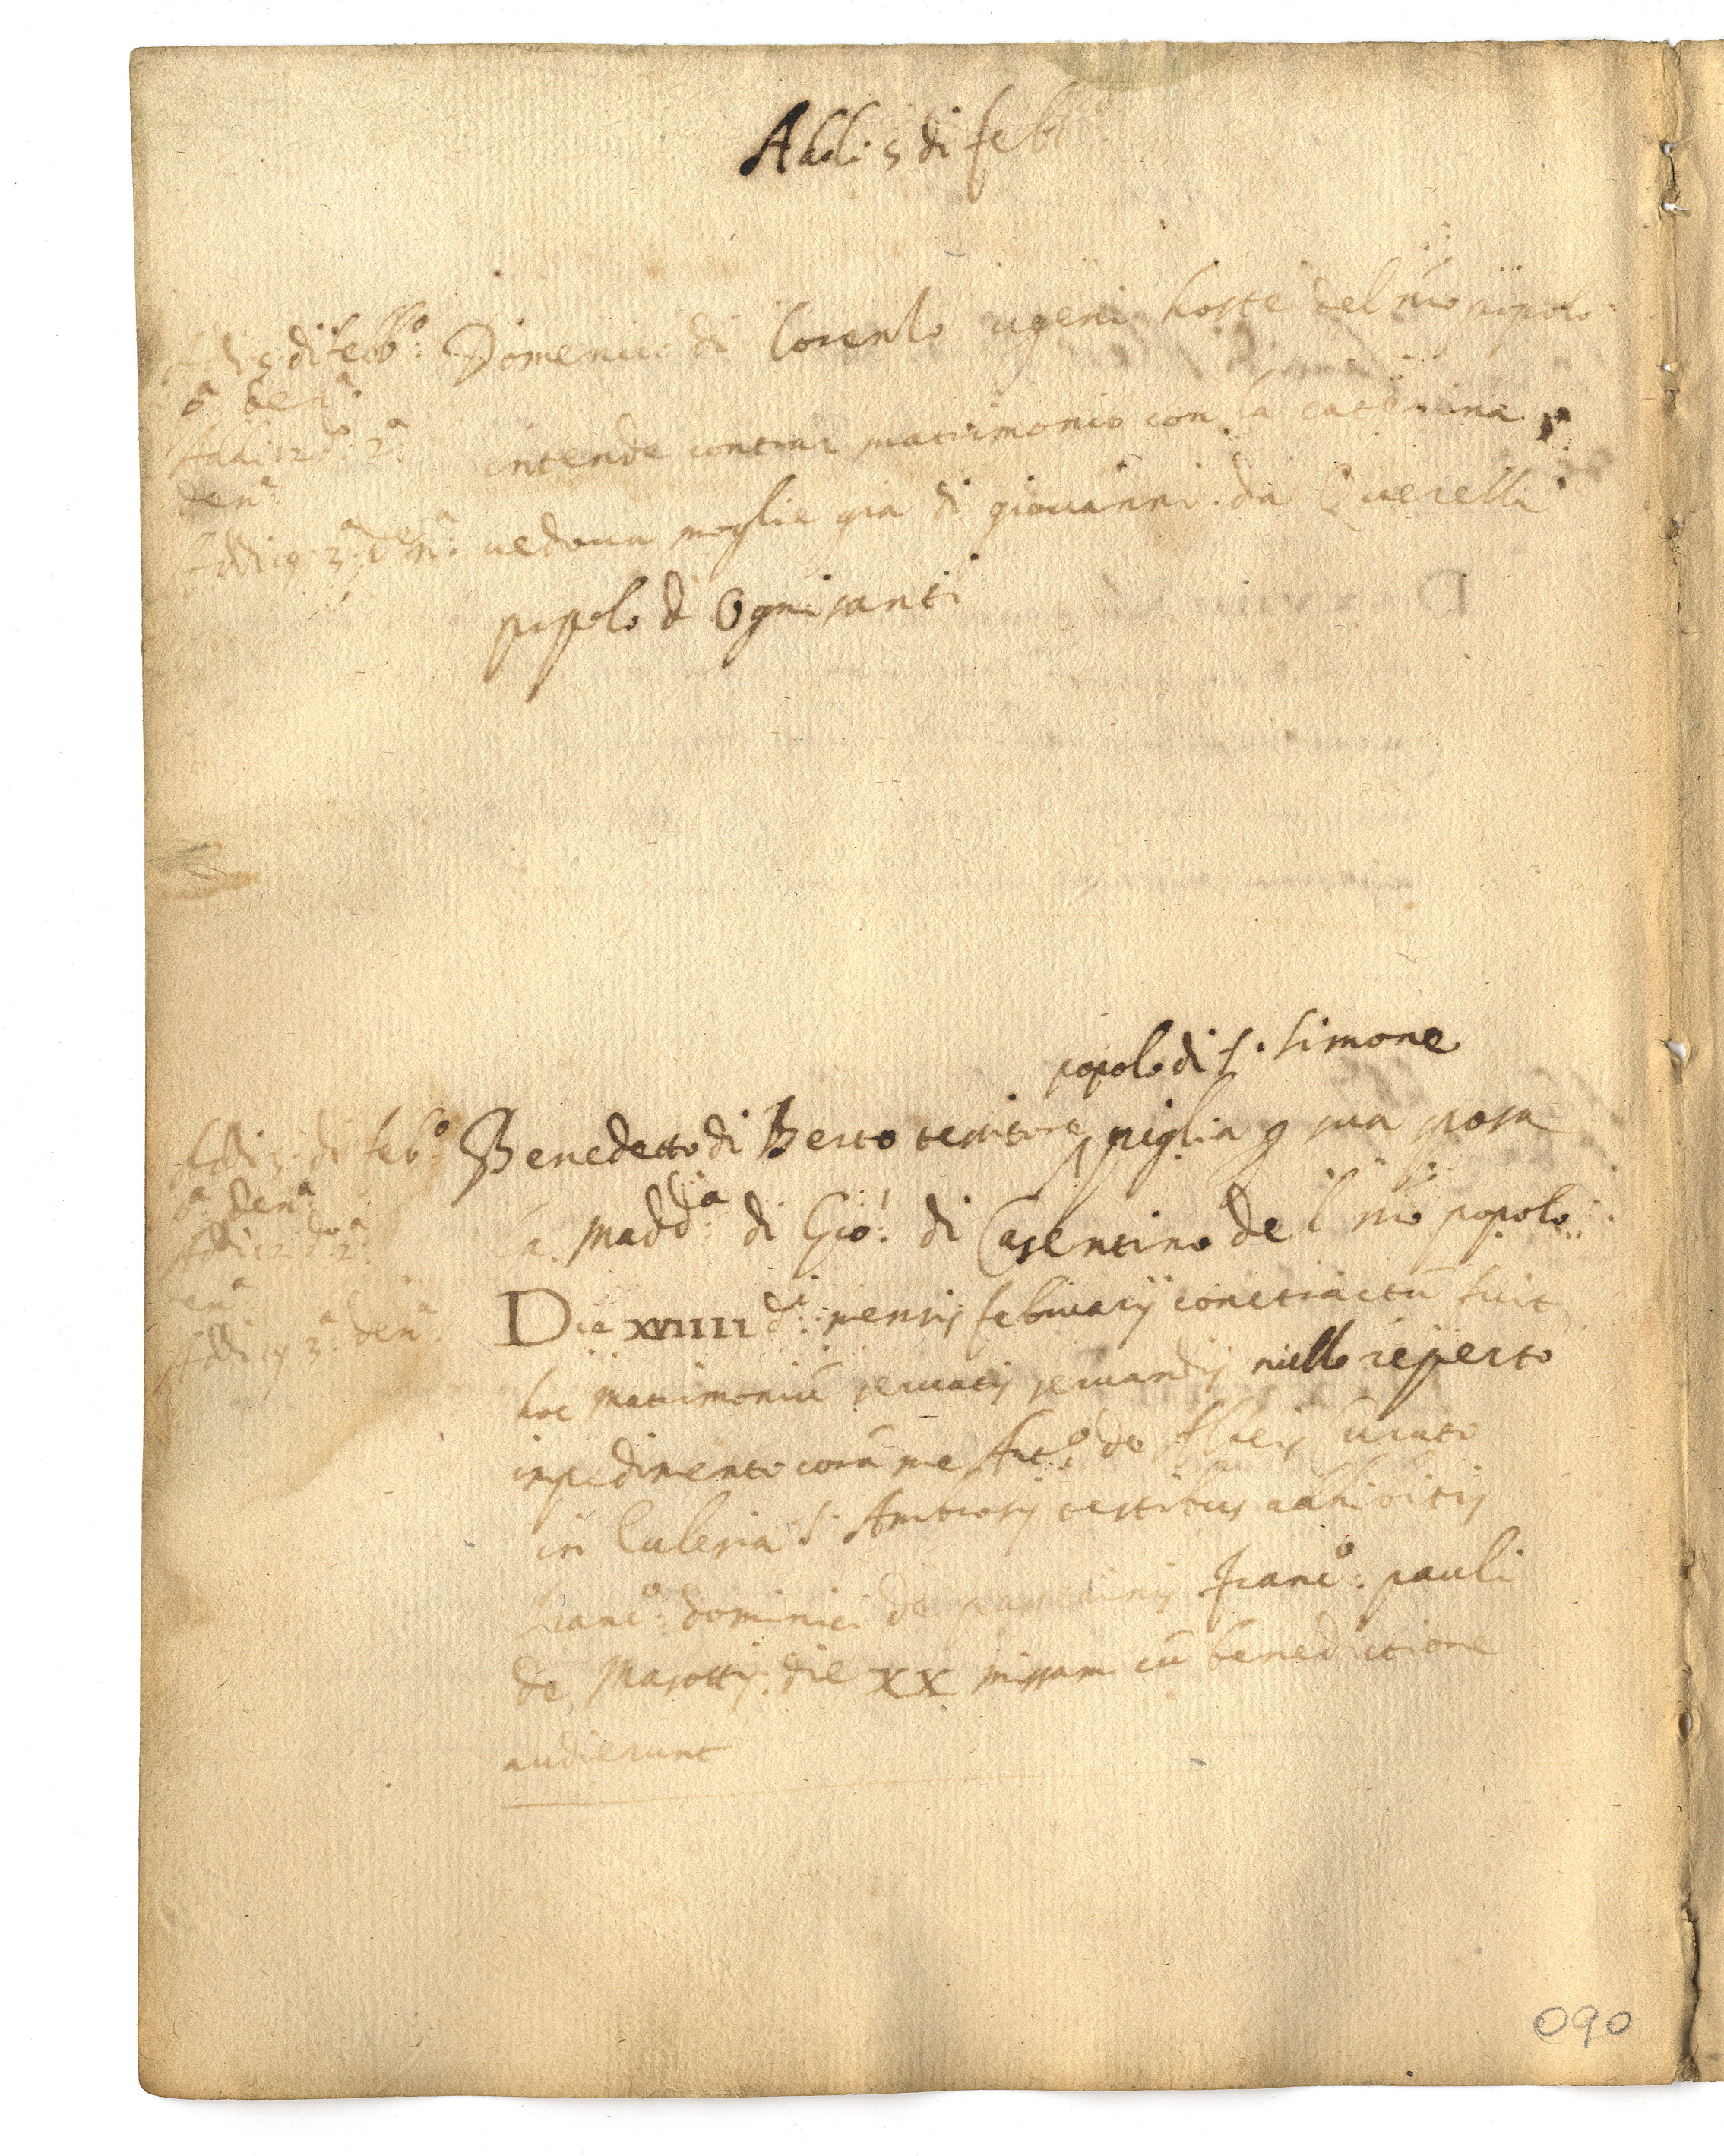 Addi 5 di feb:o
Addi 5 di febb:o
p:a den:a
Addi 12 d:o 2:a
den:a
Addi 19 3:a den:a
Domenico di lorenzo ugeni hoste del mio popolo
intende contrar matrimonio con la caterina
uedoua moglie gia di giouanni da Querella
popolo d Ognisanti
popolo di s. simone
Addi 5 di feb:o
p:a den:a
Addi 12 d:o 2:a
den:a
Addi 19 3:a den:a
Benedetto di Berto tessitore piglia p sua sposa
la Madd:a di Gio: di Casentino del mio popolo
Die XVIIII d:i mensis februarij conctractū fuit
hoc matrimoniū seruatis seruandis nullo reperto
inpedimento corā me Ant:o de Curato
in Ecclesia S. Ambrosij testibus adhibitis
franc:o dominici de franc:o pauli
de Masottis. die XX missam cū benedictione
audierunt
090